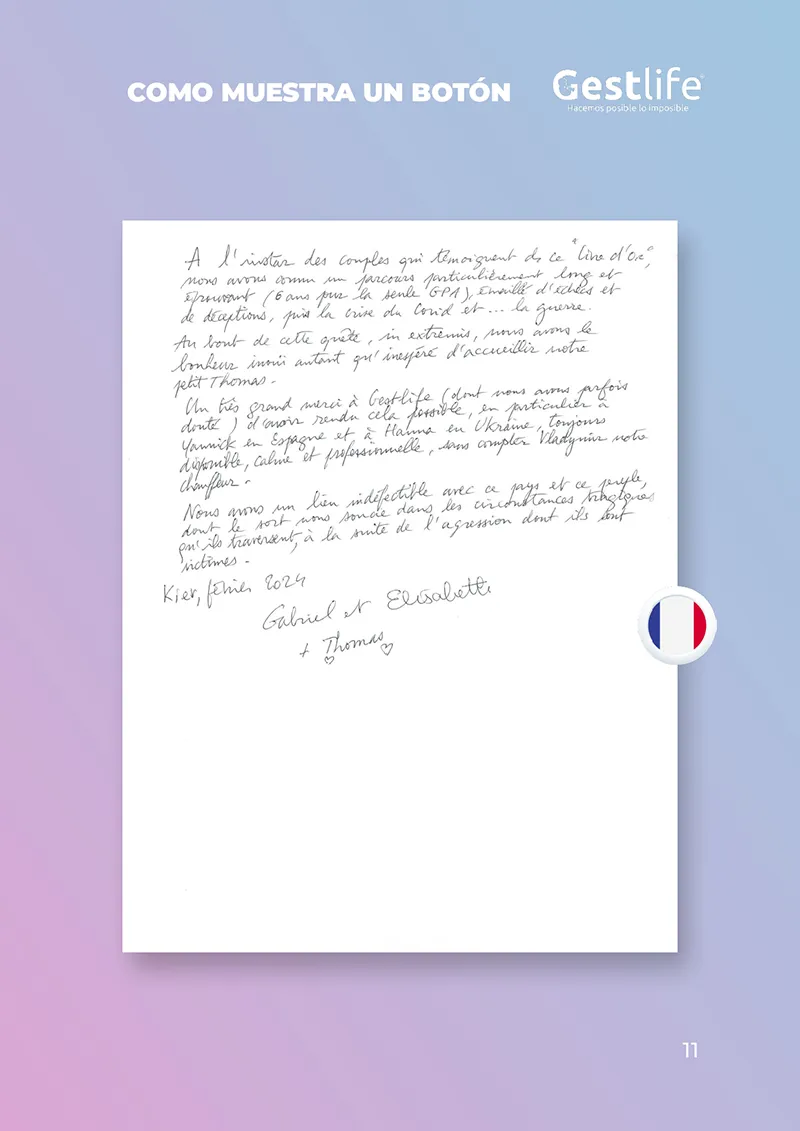 COMO MUESTRA UN BOTÓN
Gestlife
Hacemos posible lo imposible
A l'instar des couples qui témoignent ds ce "Livre d'Or",
nous avons connu un parcours particulièrement long et
éprouvant (6 ans pour la seule GPA), émaillé d'échecs et
de déceptions, puis la crise du Covid et ... la guerre.
Au bout de cette quête, in extremis, nous avons le
bonheur inouï autant qu'inespéré d'accueillir notre
petit Thomas.
Un très grand merci à Gestlife (dont nous avons parfois
douté) d'avoir rendu cela possible, en particulier à
Yannick en Espagne et à Hanna en Ukraine, toujours
disponible, calme et professionnelle, sans compter Vladymir notre
chauffeur.
Nous avons un lien indéfectible avec ce pays et ce peuple,
dont le sort nous soucie dans les circonstances tragiques
qu'ils traversent, à la suite de l'agression dont ils sont
victimes.
Kiev, février 2024
Gabriel et Elisabeth
+ Thomas
11